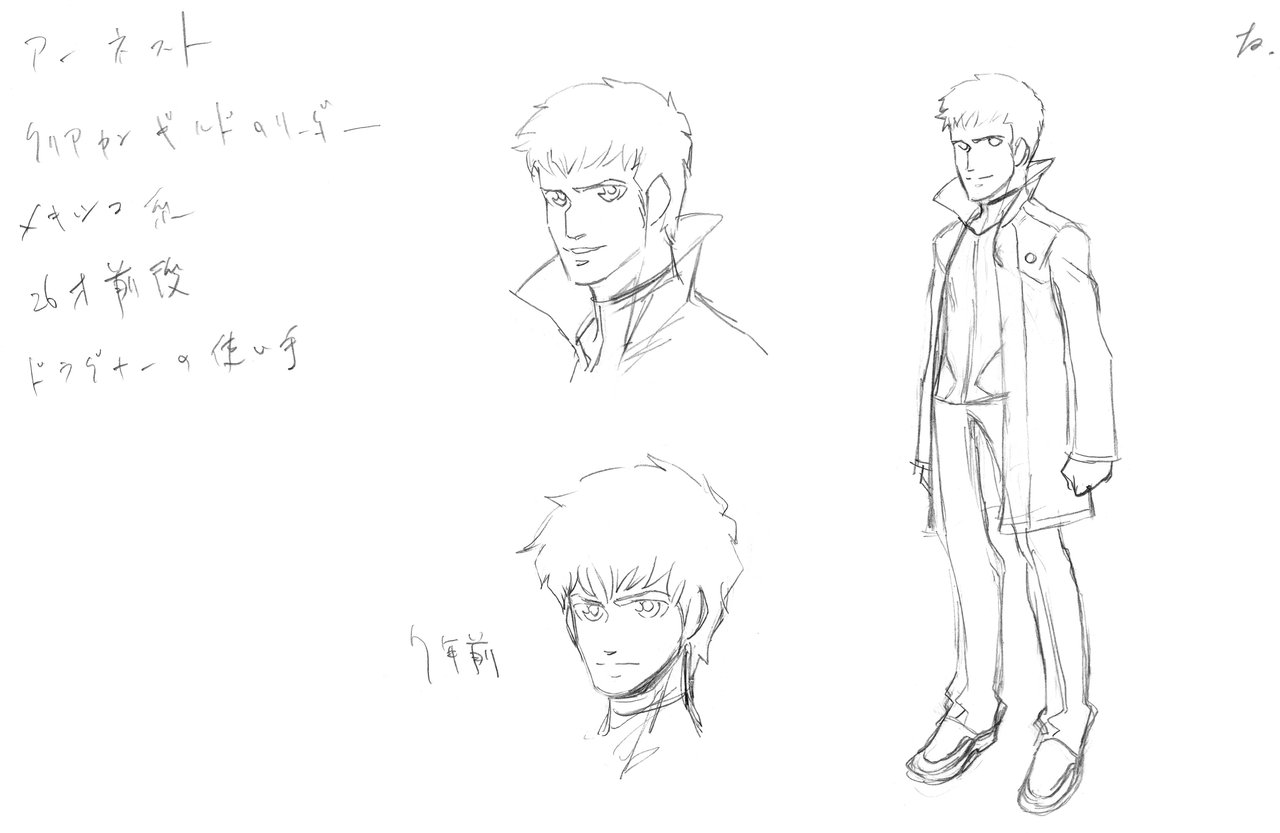 アーネスト
クリアカンギルドのリーダー
メキシコ系
26才前後
ドラグナーの使い手
7年前